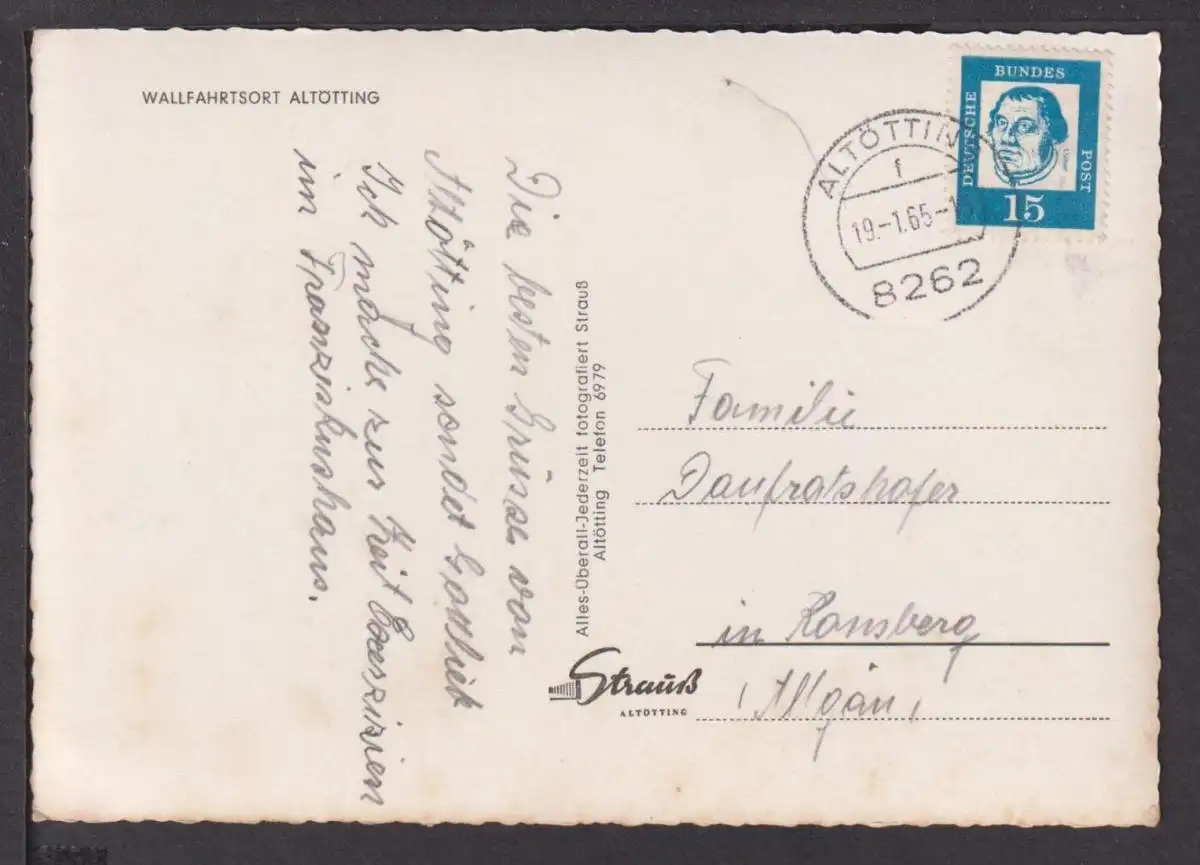 WALLFAHRTSORT ALTÖTTING
Die besten Grüsse von
Altötting sendet Gottlieb
Ich mache zur Zeit Exerzizien
im Franziskushaus.
Alles-Überall-Jederzeit fotografiert Strauß
Altötting Telefon 6979
Strauß
ALTÖTTING
DEUTSCHE
BUNDES
POST
15
ALTÖTTIN
f
19.-1.65-1
8262
Familie
Daufratshofer
in Ronsberg
(Allgäu)